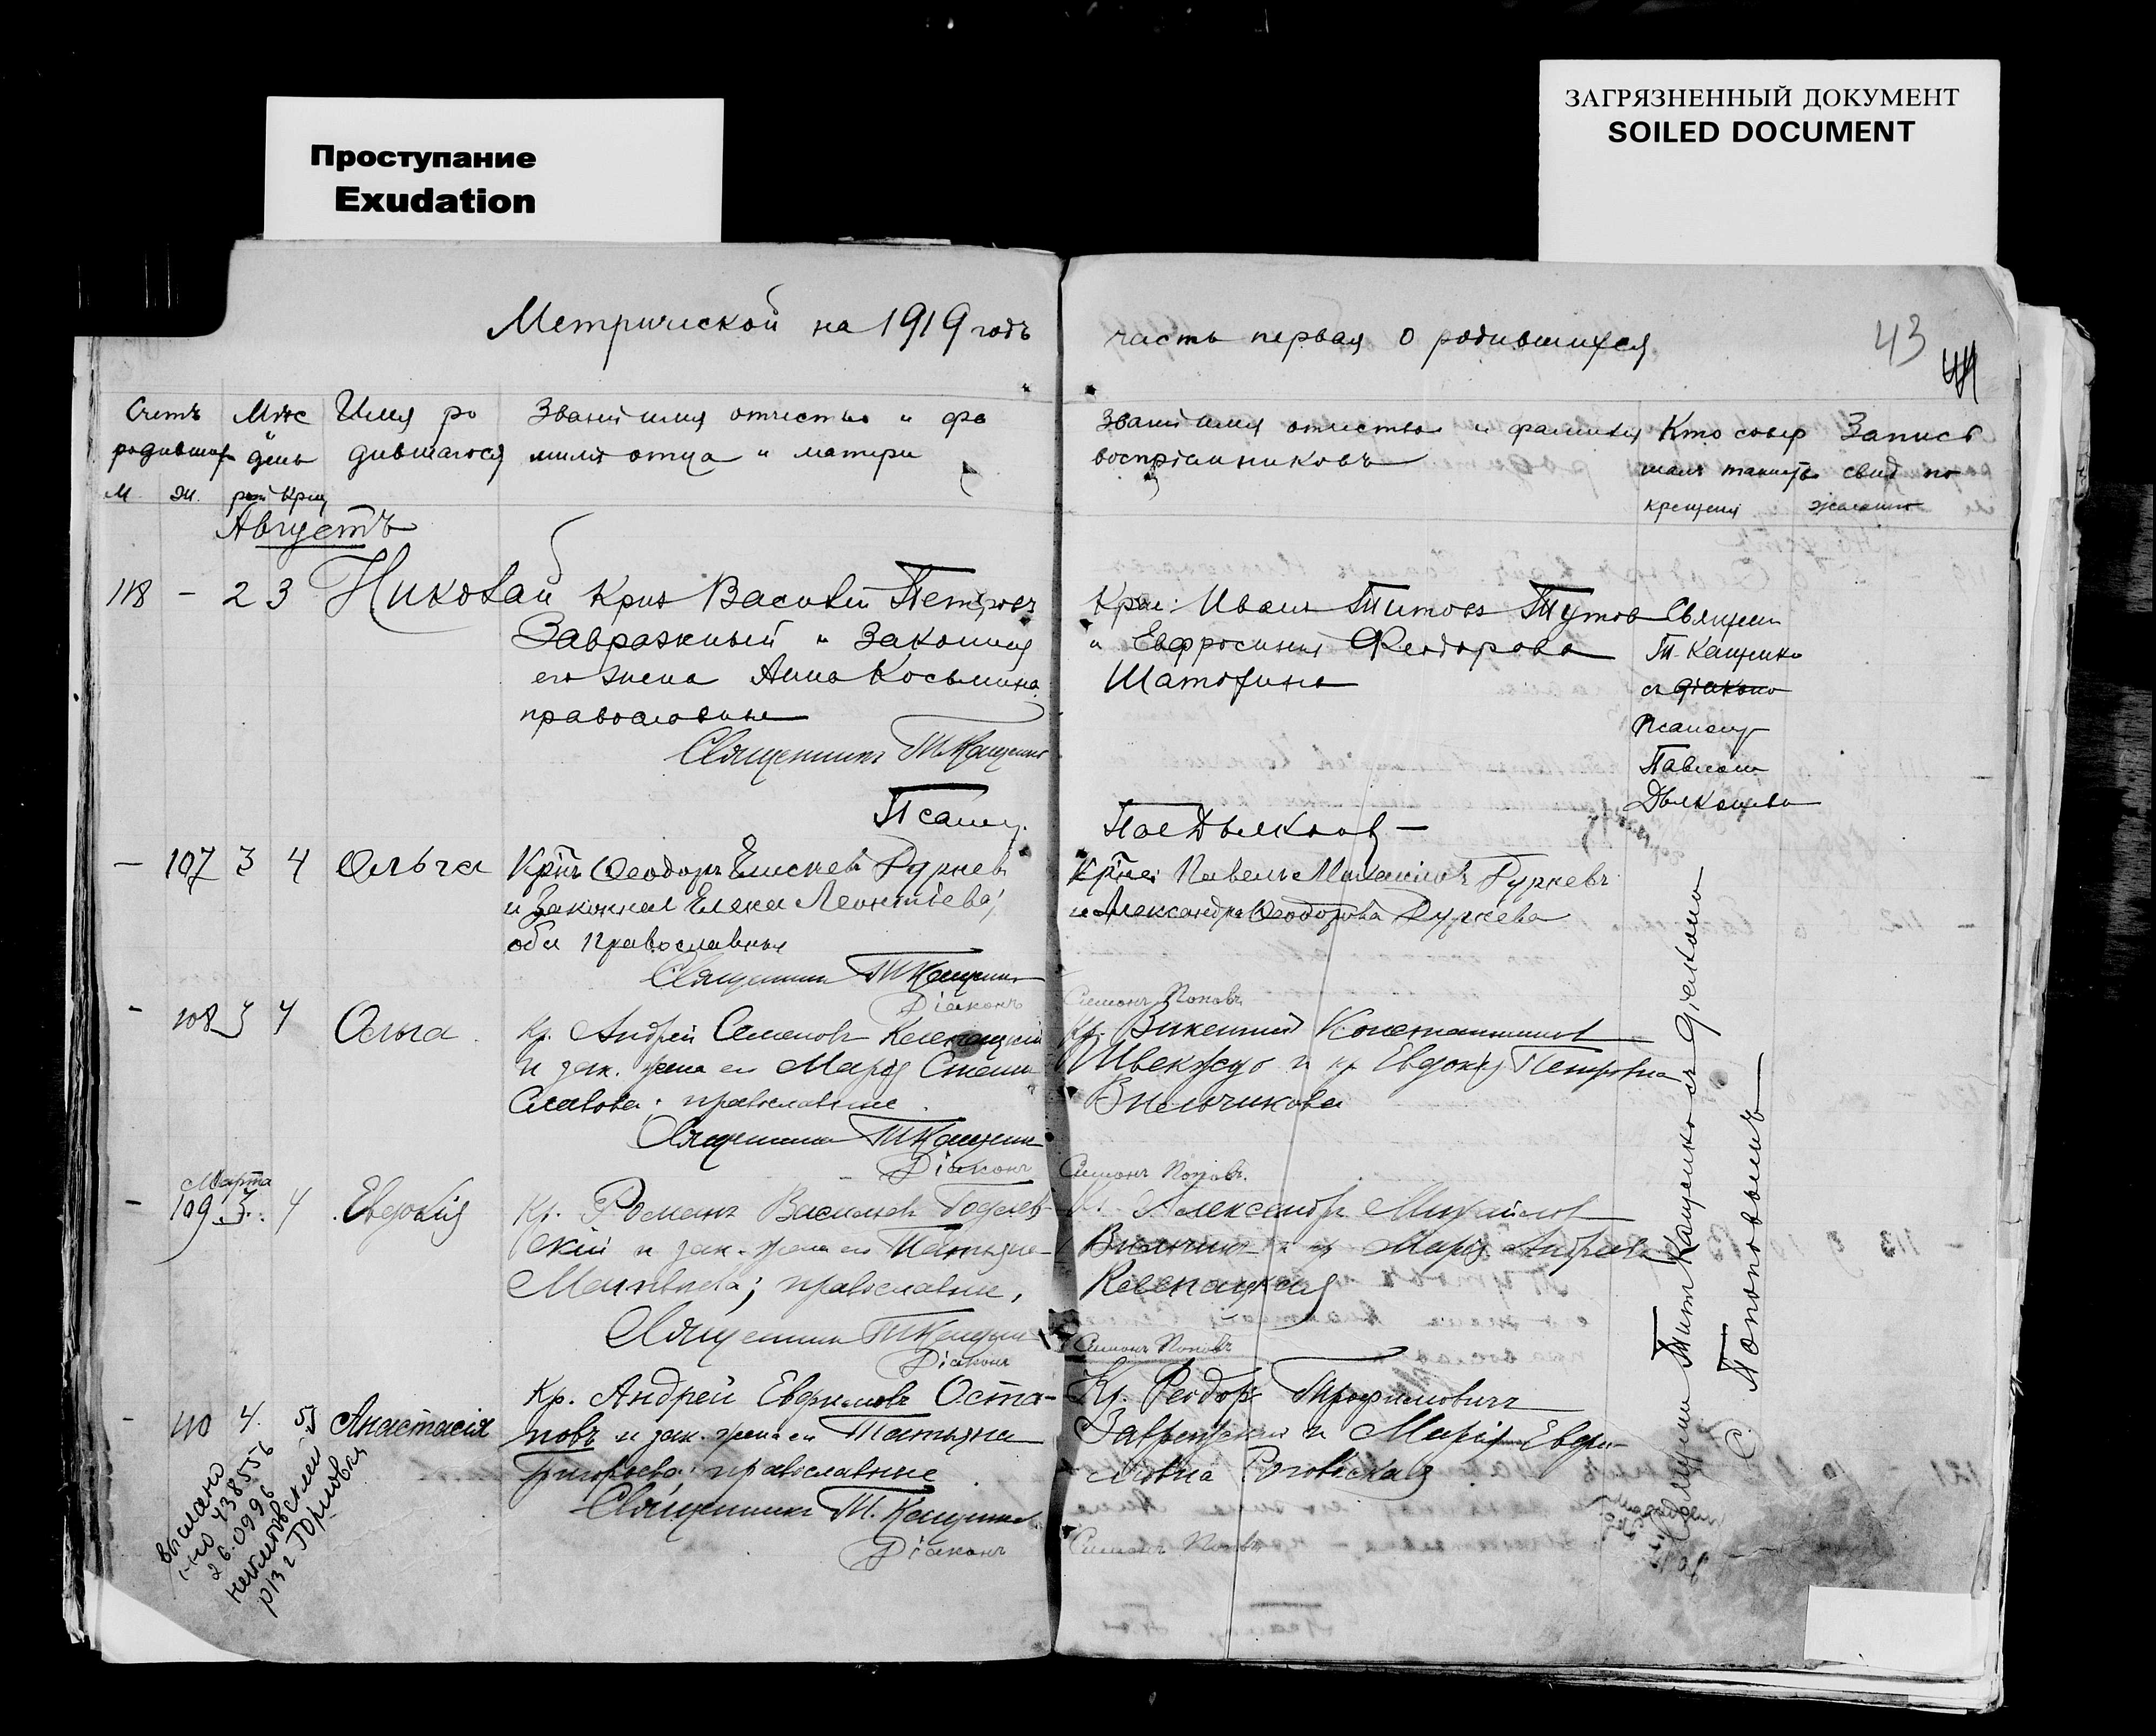 Проступание
Exudation
ЗАГРЯЗНЕННЫЙ ДОКУМЕНТ
SOILED DOCUMENT
Метрической на 1919 годъ
часть первая о родившихся
43
Счетъ
родивших
М. Ж.
Мѣс
и
день
рож Крещ
Имя ро
дившагося
Званіе имя отчество и фа
милія отца и матери
Званіе имя отчество и фамилія
воспріемниковъ
Кто совер
шалъ таинство
крещенія
Запись
свид по
желанію
Августъ
118 - 2 3 Николай
Крив Василий Петровъ
Завражный и законная
его жена Анна Косьмина
православные
Священникъ Т. Кащенко
Псалом.
Крас: Иванъ Титовъ Тутов
и Евфросинія Феодорова
Шатохина
Священ
Т. Кащенко
съ діакономъ
Псаломщ
Павломъ
- 107 3 4 Ольга
Крнъ Ѳеодоръ Елисеев Рурнев
и законная Елена Леонтіева;
оба православныя
Священникъ Т Кащенко
Діаконъ
Крнъ Павелъ Михаиловъ Рурневъ
и Александра Ѳеодорова Рурнева
Симонъ Поповъ
- 108 3 4 Ольга
Кр. Андрей Семеновъ
и зак. жена его Марія Стани
славова; православные.
Священникъ Т Кащенко
Діаконъ
Кр. Викентий Константинов
и кр Евдокія Петровна
Вильчикова
Симонъ Поповъ.
Марта
- 109 3. 4 Евдокія
Кр. Романъ Васильевъ Годлев-
скій и зак. жена его Татьяна
Матвѣева; православные.
Священникъ Т Кащенко
Діаконъ
Кр. Александръ Михайлов
и кр Марія Андреева
Симонъ Поповъ
- 110 4. 5 Анастасія
Кр. Андрей Евфимовъ Оста-
повъ и зак. жена его Татьяна
Григорьева; православные
Священникъ Т. Кащенко
Діаконъ
Кр. Феодоръ Трофимовичъ
и Марія Евфи-
мовна
Симонъ Поповъ
Священ Титъ Кащенко съ діакономъ
С. Поповымъ
выслано
I-но 438556
26.09.96
никитовский
рзг Горловки